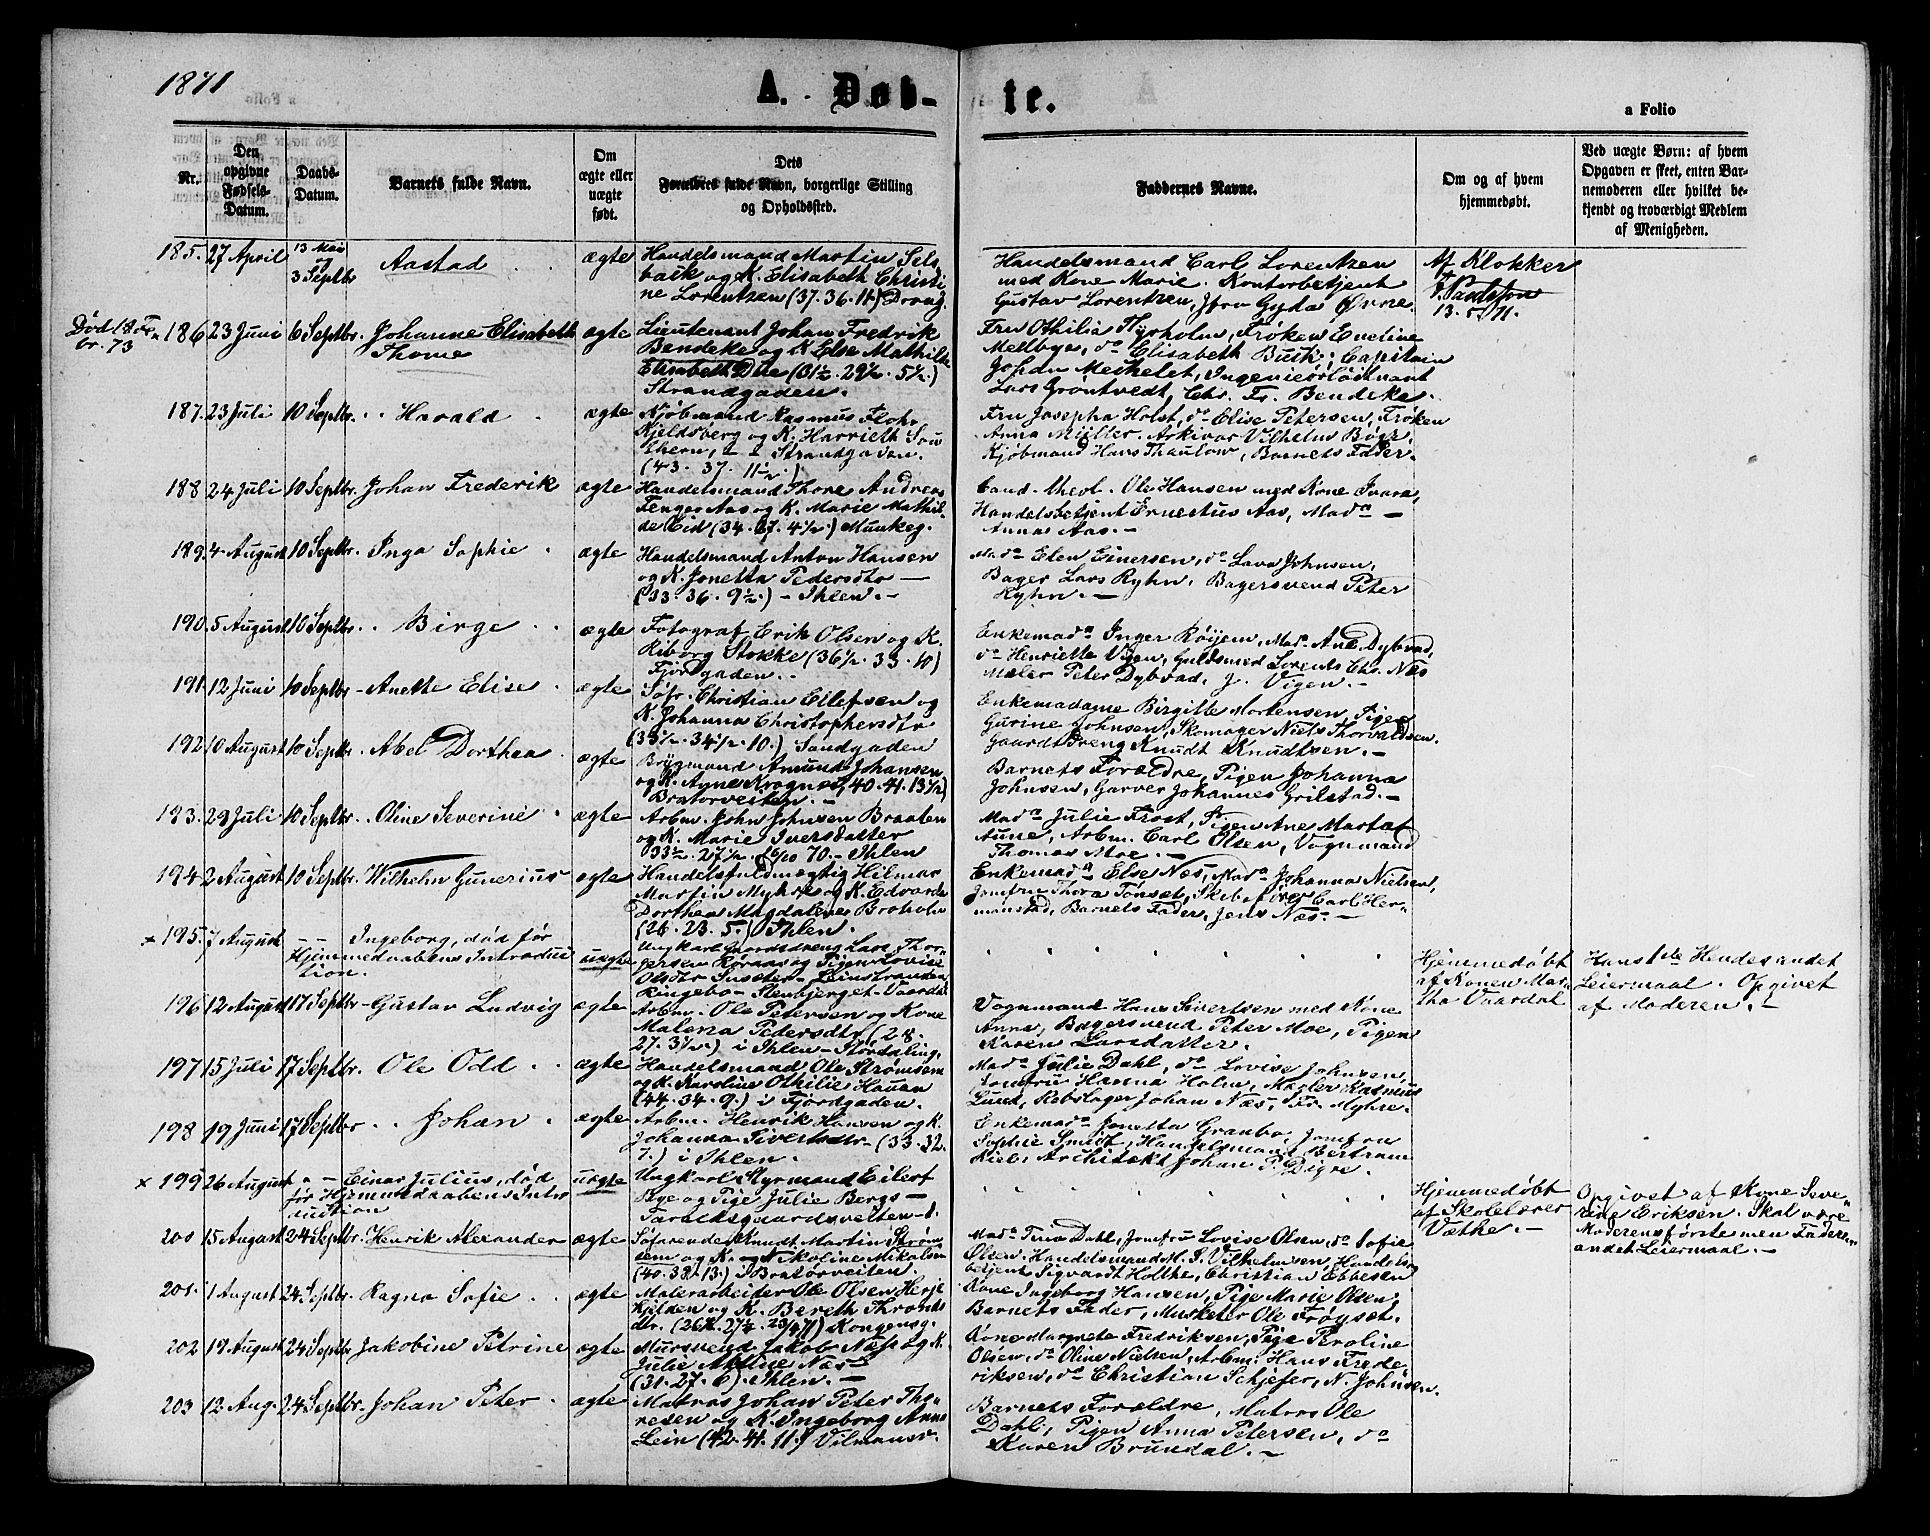 1871
A. Døb-
te.
a Folio
Nr.
Den opgivne Fødsels-Datum.
Daabs-Datum.
Barnets fulde Navn.
Om ægte eller uægte født.
Dets Forældres fulde Navn, borgerlige Stilling og Opholdssted.
Faddernes Navne.
Om og af hvem hjemmedøbt.
Ved uægte Børn: af hvem Opgaven er skeet, enten Barnemoderen eller hvilket bekjendt og troværdigt Medlem af Menigheden.
185. 27 April 13 Mai og 3 Septbr Aastad ægte
Handelsmand Martin Sels-
baik og K. Elisabeth Christi-
ne Lorentzen (37. 36. 11)
Handelsmand Carl Lorentzen
med Kone Marie. Kontorbetjent
Gustav Lorentzen, Jfru Gyda Øvne.
Af Klokker
13. 5. 71.
Død 18.
br. 73
186 23 Juni 6 Septbr. Johanne Elisabeth ægte
Thome
Lieutenant Johan Fredrik
Bendeke og K Else Mathilde
Elisabeth Due (31½. 29½. 5½)
Strandgaden.
Fru Othilia Thyrholm, Frøken Eveline
Mellbye, do Elisabeth Busk; Capitain
Johan Michelet, Ingeniørlöitnant
Lars Gröntvedt, Chr. Fr. Bendeke.
187. 23 Juli 10 Septbr. Harald ægte
Kjøbmand Rasmus Flohr
Kjeldsberg og K. Harrieth
Strandgaden.
(43. 37. 11½)
Fru Josepha Holst, do Elise Petersen, Frøken
Anna Müller. Arkivar Vilhelm
Kjøbmand Hans Thaulow, Barnets Fader.
188 24 Juli 10 Septbr. Johan Frederik ægte
Handelsmand Thore Andreas
Fenger Aas og K. Marie Mathil-
de Eid (34. 27. 4½) Munkeg.
Cand. theol. Ole Hansen med Kone
Handelsbetjent Ernestus Aas, Mada
Anna Aas.
189. 4 August 10 Septbr. Inga Sophie ægte
Handelsmand Anton Hansen
og K. Jonetta Pedersdtr
(33. 36. 9½) - Ihlen.
Mada Elen Einersen, do Lava Johnsen,
Bager Lars Ryhn, Bagersvend Peter
Ryhn.
190. 5 August 10 Septbr. Birge ægte
Fotograf Erik Olsen og K.
Riborg Stokke (36½. 33. 10)
Fjordgaden.
Enkemada Inger Röijem, Mada Ane Dybvad,
do Henriette Vigen, Guldsmed Lorents Chr. Næs
Maler Peter Dybvad, J. Vigen.
191. 12 Juni 10 Septbr. Anette Elise ægte
Söfr. Christian Ellefsen og
K. Johanna Christophersdtr
(33½. 34½. 10.) Sandgaden
Enkemadame Birgitte Mortensen, Pigen
Gurine Johnsen, Skomager Niels Thorvaldsen.
Gaardsdreng Knudt Knudtsen.
192 10 August 10 Septbr. Abel Dorthea ægte
Brygmand Amund Johansen
og K. Agne Krognes, 40. 41. 13½)
Bratorveiten.
Barnets Forældre, Pigen Johanna
Johnsen, Garver Johannes Grilstad.
193. 29 Juli 10 Septbr. Oline Severine ægte
Arbm. John Johnsen Braaten
og K. Marie Iversdatter
(33½. 27½. 16/10 70. - Ihlen
Mada Julie Frost, Pigen Ane Marta
Aune, Arbm. Carl Olsen, Vognmand
Thomas Moe.
194 2 August 10 Septbr. Wilhelm Gunerius ægte
Handelsfuldmægtig Hilmar
Martin Myhre og K. Edvarda
Dorthea Magdalene Broholm
(26. 23. 5.) Ihlen.
Enkemada Else Næs, Mada Johanna Nielsen,
Jomfru Thora Tönset, Skibsfører Carl Her-
manstad, Barnets Fader, Jens Næs.
× 195. 7 August Ingeborg, død før uægte
Hjemmedaabens Introduc-
tion.
Ungkarl Gaardsdreng Lars Thor-
gersen Röraas og Pigen Lovise
Olsdtr Leinstranden
Ringebo - Stenbjerget -
Hjemmedøbt
af Konen Mar-
tha Vaardal
Hans 1ste Hendes andet
Leiermaal. Opgivet
af Moderen.
196 12 August 17 Septbr. Gustav Ludvig ægte
Arbm. Ole Petersen og Kone
Malena Pedersdtr (28.
27. 3½.) i Ihlen
Vognmand Hans Sivertsen med Kone
Anna, Bagersvend Peter Moe, Pigen
Karen Larsdatter.
197 15 Juli 17 Septbr. Ole Odd ægte
Handelsmand Ole Strömsem
og K. Karoline Othilie Hauan
(44. 34. 9.) i Fjordgaden.
Mada Julie Dahl, do Lovise Johnsen,
Jomfru Hanna Holm, Mægler Rasmus
Lund, Rebslager Johan Næs, Fr. Myhre.
198 19 Juni 17 Septbr Johan ægte
Arbm. Henrik Hansen og K.
Johanna Sivertsdtr (33. 32.
7.) i Ihlen.
Enkemada Jonetta Granbo, Jomfru
Sophie Smidt, Handelsmand Bertram
Kiel, Architekt Johan P. Digre.
× 199 26 August Einar Julius, død uægte
før Hjemmedaabens Intro-
duction
Ungkarl Styrmand Eilert
Bye og Pige Julie Bergs
Taraldsgaardsveiten
Hjemmedøbt
af Skolelærer
Væthe.
Opgivet af Kone Seve-
rine Eriksen. Skal være
Moderens første men Faderens
andet Leiermaal.
200 15 August 24 Septbr. Henrik Alexander ægte
Söfarende Knudt Martin Ström-
sem og K. Nikoline Mikalsen
(40. 38. 13.) i Bratörveiten.
Mada Trina Dahl, Jomfru Lovise Olsen, do Sofie
Olsen. Handelsmand M. S. Vilhelmsen, Handels-
betjent Sigvardt Holthe, Christian Ebbesen
201. 1 August 24 Septbr. Ragna Sofie ægte
Malerarbeider Ole Olsen Hersje
Kjelden og K. Bereth Thronds
dtr. Kongensg.
Kone Ingeborg Hansen, Pige Marie Olsen
Barnets Fader, Musketer Ole Frøyset.
202 19 August 24 Septbr. Jakobine Petrine ægte
Mursvend Jakob Næs og K.
Julie Næs
(31. 27. 6) Ihlen.
Kone Margrete Fredriksen, Pige Peroline
Olsen, do Oline Nielsen, Arbm. Hans Frede-
riksen, do Christian Schjefer, N. Johnsen.
203 12 Aug. 24 Septbr. Johan Peter ægte
Matros Johan Peter The-
resen og K. Ingeborg Anna
Lein (42. 41. 11.)
Barnets Forældre, Matros Ole
Dahl, Pigen Anna Petersen, do
Karen Brundal.